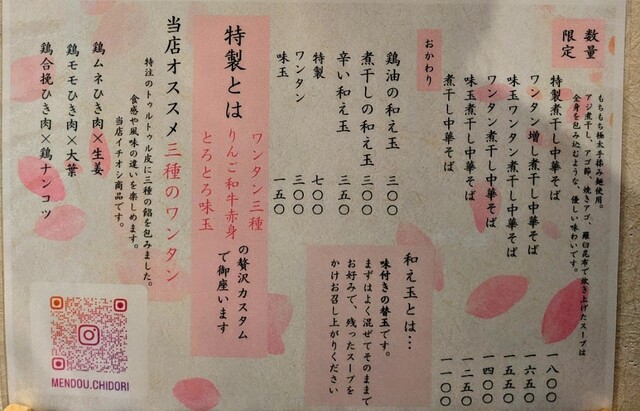 数量
限定
もちもち極太手揉み麺使用。
アジ煮干し、アゴ節、焼きアゴ、羅臼昆布で炊き上げたスープは
全身を包み込むような、優しい味わいです。
特製煮干し中華そば 一八〇〇
ワンタン増し煮干し中華そば 一六五〇
味玉ワンタン煮干し中華そば 一五五〇
ワンタン煮干し中華そば 一四〇〇
味玉煮干し中華そば 一二五〇
煮干し中華そば 一一〇〇
おかわり
鶏油の和え玉 三〇〇
煮干しの和え玉 三〇〇
辛い和え玉 三五〇
特製 七〇〇
ワンタン 三〇〇
味玉 一五〇
和え玉とは…
味付きの替玉です。
まずはよく混ぜてそのままで
お好みで、残ったスープを
かけお召し上がりください
特製とは
ワンタン三種
りんご和牛赤身
とろとろ味玉
の贅沢カスタム
で御座います
当店オススメ三種のワンタン
特注のトゥルトゥル皮に三種の餡を包みました。
食感や風味の違いを楽しめます。
当店イチオシ商品です。
鶏ムネひき肉×生姜
鶏モモひき肉×大葉
鶏合挽ひき肉×鶏ナンコツ
MENDOU.CHIDORI